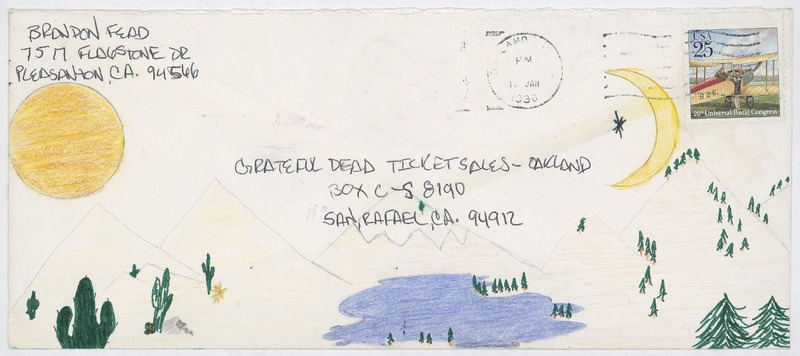 BRANDON FEAD
7517 FLAGSTONE DR
PLEASANTON, CA. 94566
PM
JAN
1990
USA
25
20th Universal Postal Congress
GRATEFUL DEAD TICKET SALES - OAKLAND
BOX C-S 8190
SAN RAFAEL, CA. 94912